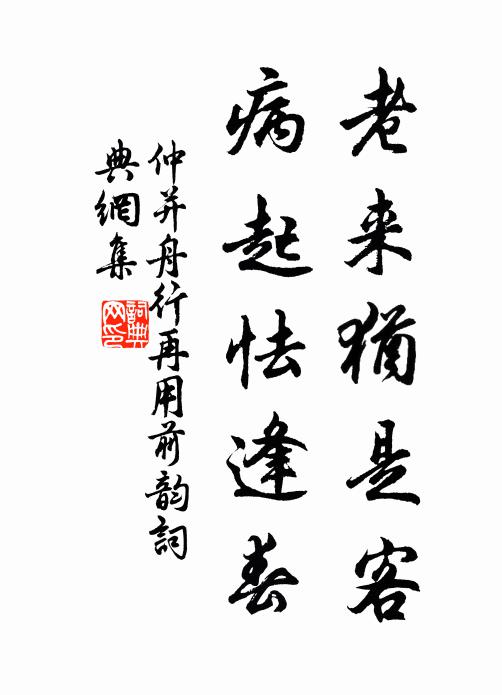 老来猶是客
病起怯逢春
仲并舟行再用前韵詞
典網集
詞典网印